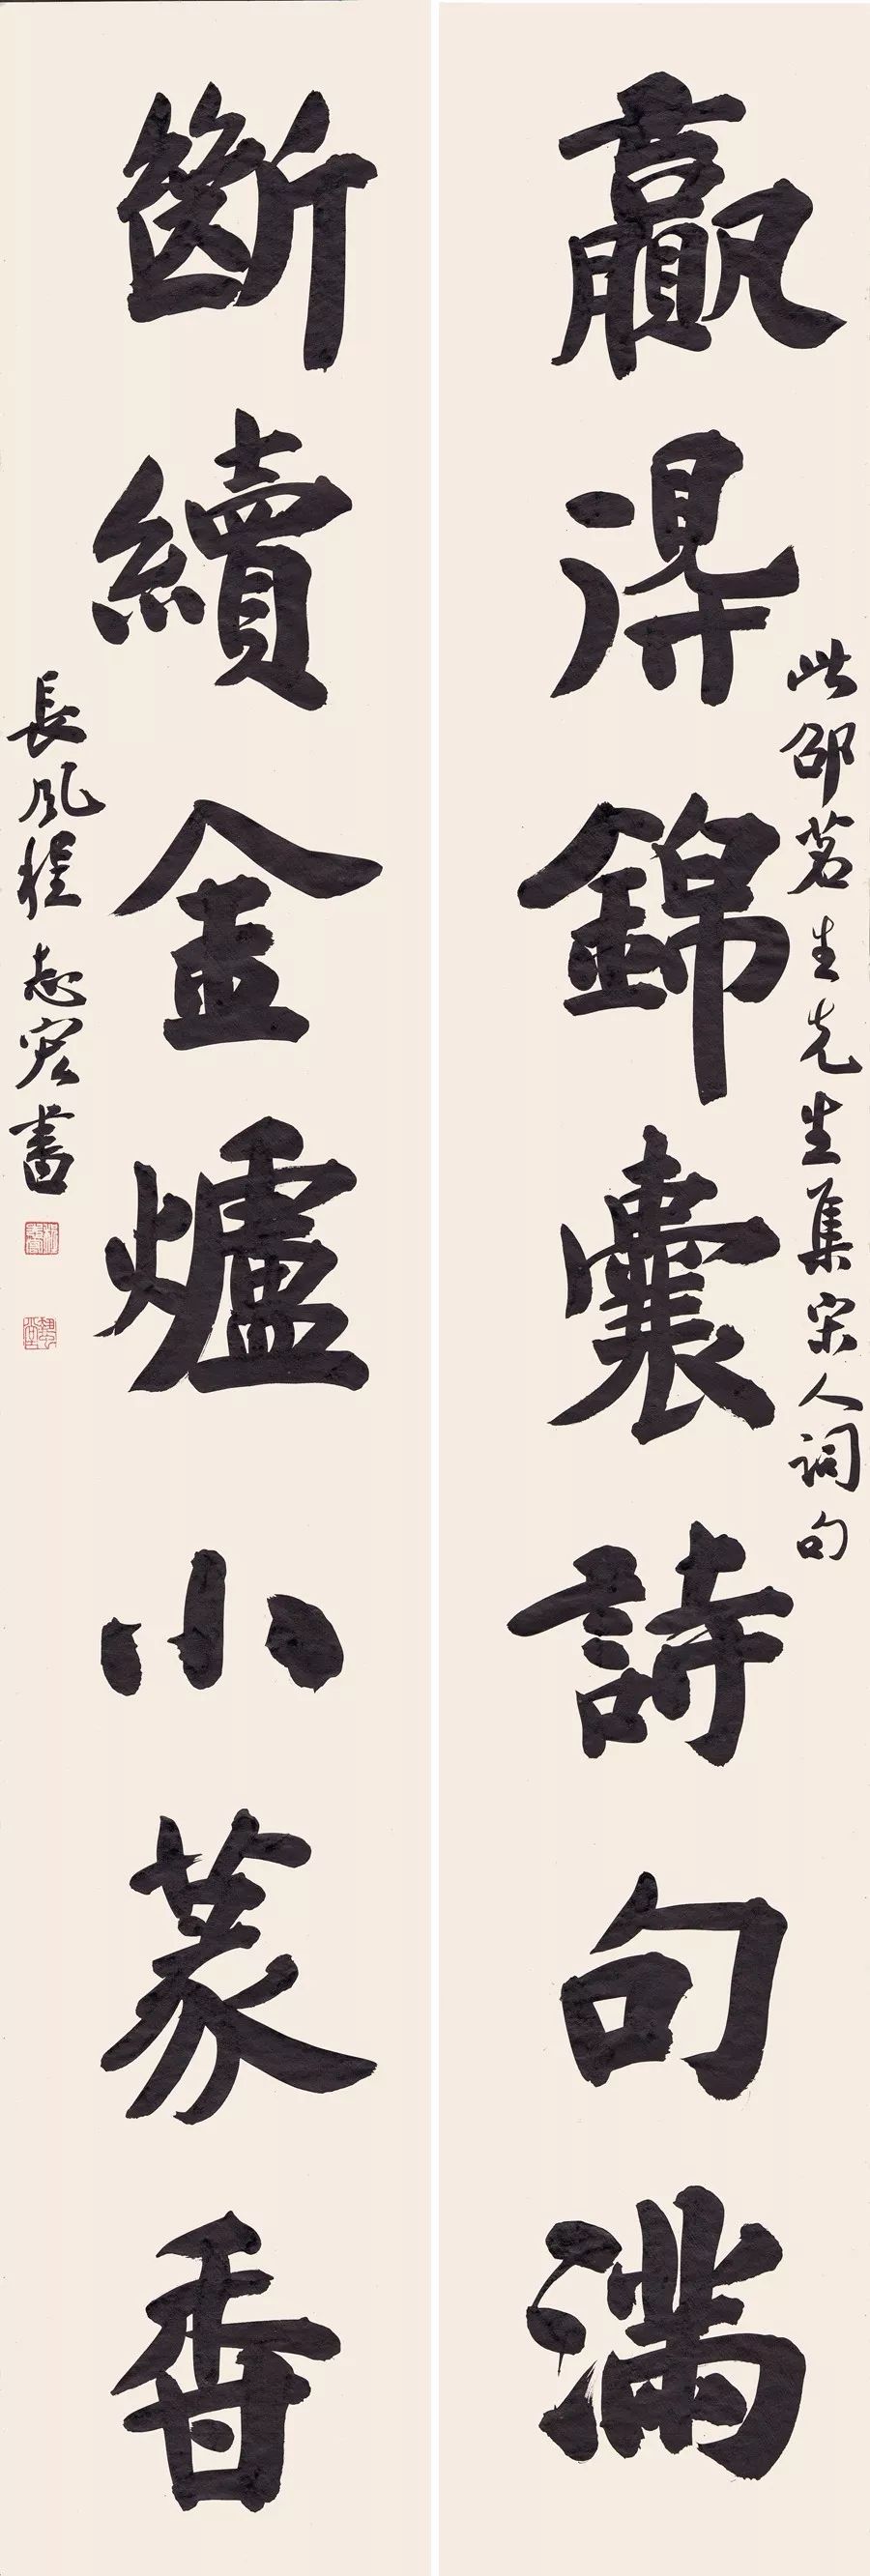 此邵茗生先生集宋人詞句
贏得錦囊詩句滿
斷續金爐小篆香
長風程志宏書